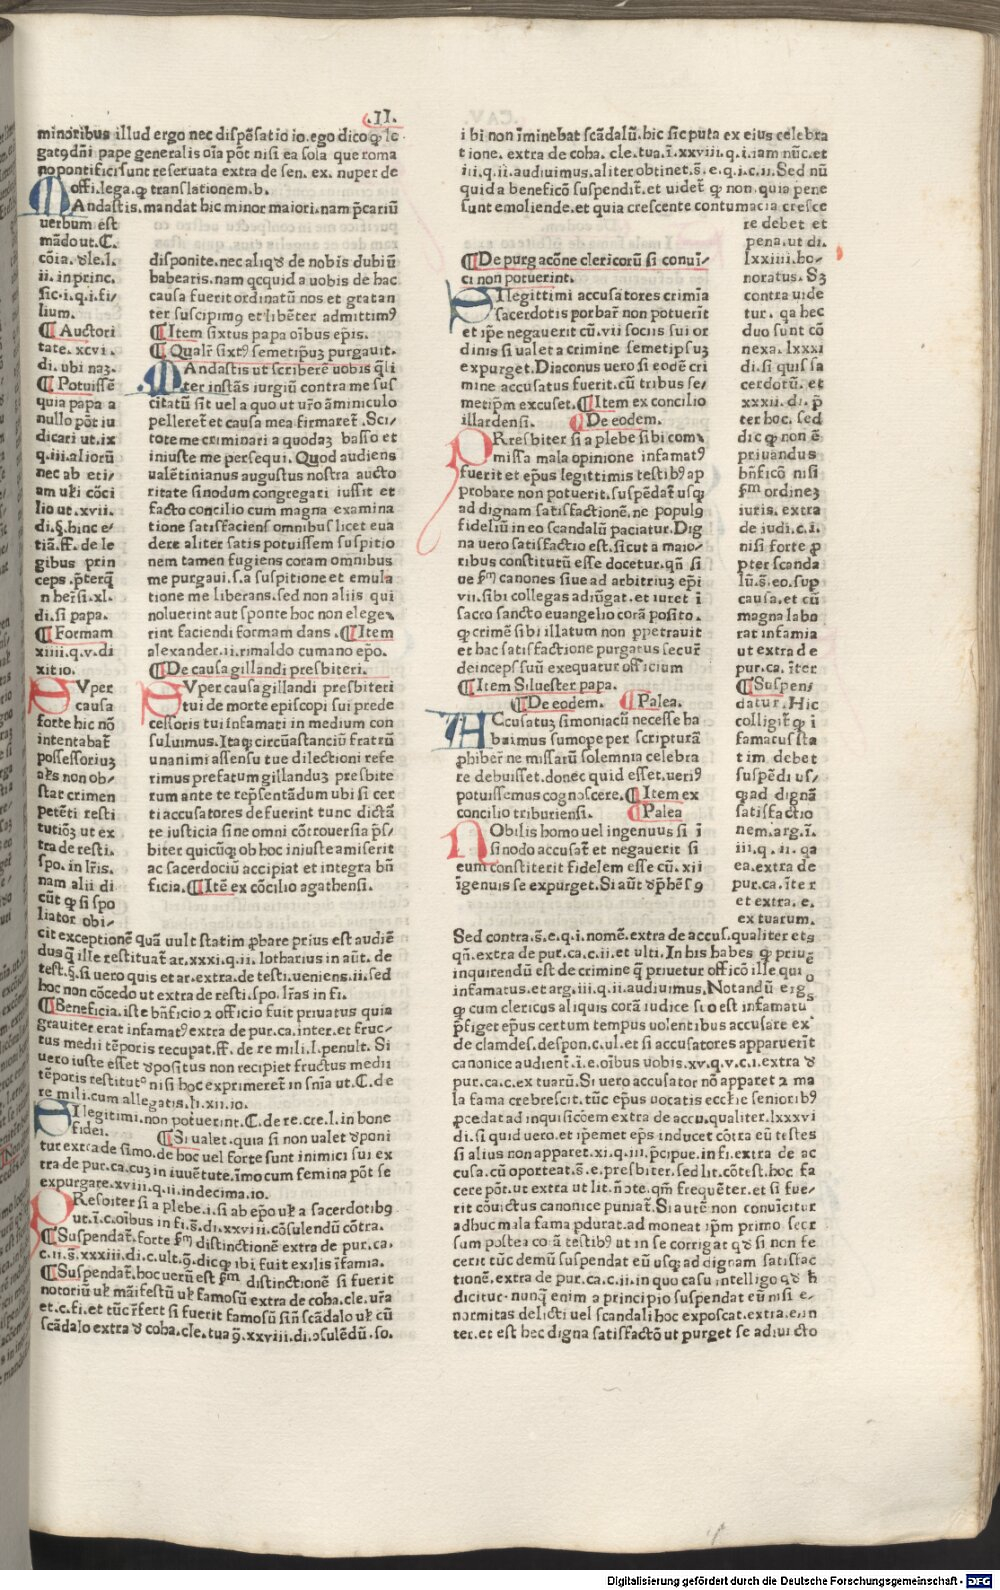 .II.
minoribus illud ergo nec dispēsatio io. ego dico qͥ le
gatꝰ dñi pape generalis oīa pōt nisi ea sola que roma
no pontifici sunt reseruata extra de sen. ex. nuper de
offi. lega. qͥ translationem. b.
MAndastis. mandat hic minor maiori. nam p̄cariū
uerbum est
mādo ut. C.
cōia. de le. l.
ii. in princ.
sic. i. q. i. fi/
lium.
¶ Auctori
tate. xcvi.
di. ubi naꝫ.
¶ Potuissē
quia papa a
nullo pōt iu
dicari ut. ix
q. iii. aliorū
nec ab eti/
am uꝉi cōci
lio ut. xvii.
di. §. hinc e/
tiā. ff. de le
gibus prin
ceps. p̄terqͣ
n her̄si. xl.
di. si papa.
¶ Formam
xiiii. q. v. di
xit io.
SVper
causa
forte hic nō
intentabat̄
possessoriuꝫ
aꝉs non ob/
stat crimen
petēti resti
tutiōꝫ ut ex
tra de resti.
spo. in lr̄is.
nam alii di
cūt qͥ si spo
liator obi/
disponite. nec aliqd de nobis dubiū
habearis. nam qcquid a uobis de hac
causa fuerit ordinatū nos et gratan
ter suscipimꝰ et libēter admittimꝰ
¶ Item sixtus papa oībus ep̄is.
¶ Qualr̄ sixtꝰ semetipꝫ purgauit.
MAndastis ut scriberē uobis qͣli
ter instās iurgiū contra me sus
citatū sit uel a quo ut ur̄o āminiculo
pelleret̄ et causa mea firmaret̄. Sci/
tote me criminari a quodaꝫ basso et
iniuste me persequi. Quod audiens
ualētinianus augustus nostra aucto
ritate sinodum congregari iussit et
facto concilio cum magna examina
tione satisfaciens omnibus licet eua
dere aliter satis potuissem suspitio
nem tamen fugiens coram omnibus
me purgaui. s. a suspitione et emula
tione me liberans. sed non aliis qui
noluerint aut sponte hoc non elege/
rint faciendi formam dans. ¶ Item
alexander. ii. rimaldo cumano ep̄o.
¶ De causa gillandi presbiteri.
SVper causa gillandi presbiteri
tui de morte episcopi sui prede
cessoris tui infamati in medium con
suluimus. Itaqꝫ circūastanciū fratrū
unanimi assensu tue dilectioni refe
rimus prefatum gillanduꝫ presbite
rum ante te rep̄sentādum ubi si cer
ti accusatores defuerint tunc dictā
te iusticia sine omni cōtrouersia p̄s/
biter quicūqꝫ ob hoc iniuste amiserit
ac sacerdociū accipiat et integra bn̄
ficia. ¶ Itē ex cōcilio agathensi.
cit exceptionē quā uult statim ꝓbare prius est audiē
dus qͣ ille restituat̄ ar. xxxi. q. ii. lotharius in aūt. de
test. §. si uero quis et ar. extra. de testi. ueniens. ii. sed
hoc non cōcedo ut extra de resti. spo. lr̄as in fi.
¶ Beneficia. iste bn̄ficio 2 officio fuit priuatus quia
grauiter erat infamatꝰ extra de pur. ca. inter. et fruc/
tus medii tēporis recupat. ff. de re mili. l. penult. Si
uero iuste esset depositus non recipiet fructus medii
tēporis restitutꝰ nisi hoc exprimeret̄ in sn̄ia ut. C. de
re mili. cum allegatis. h. xii. io.
SI legitimi. non potuerint. C. de re. cre. l. in bone
fidei. ¶ Si ualet. quia si non ualet deponi
tur extra de simo. de hoc uel forte sunt inimici sui ex
tra de pur. ca. cuꝫ in iuuētute. īmo cum femina pōt se
expurgare. xviii. q. ii. indecima. io.
PResbiter si a plebe. i. si ab ep̄o uꝉ a sacerdotibꝰ
ut. ī. c. oībus in fi. s̄. di. xxviii. cōsulendū cōtra.
¶ Suspendat̄. forte ẜm distinctionē extra de pur. ca.
c. ii. s̄. xxxiii. di. c. ult. q̄. dic qͥ ibi fuit exilis īfamia.
¶ Suspendat̄. hoc uerū est ẜm distinctionē si fuerit
notoriū uꝉ māifestū uꝉ famosū extra de coha. cle. ur̄a
et. c. fi. et tūc r̄fert si fuerit famosū siñ scādalo uꝉ cū
scādalo extra de coha. cle. tua q̄. xxviii. di. ɔsulēdū. so.
ibi non īminebat scādalū. hic sic puta ex eius celebra
tione. extra de coha. cle. tua. ī. xxviii. q. i. iam nūc. et
iii. q. ii. audiuimus. aliter obtinet. s̄. e. q. i. c. ii. Sed nū
quid a beneficō suspendit̄. et uidet̄ qͥ non. quia pene
sunt emoliende. et quia crescente contumacia cresce
re debet et
pena. ut di.
lxxiiii. ho/
noratus. Sꝫ
contra uide
tur. qa hec
duo sunt cō
nexa. lxxxi
di. si quis sa
cerdotū. et
xxxii. di. p̄
ter hoc. sed
dic qͥ non ē
priuandus
bn̄ficō nisi
ẜm ordineꝫ
iuris. extra
de iudi. c. i.
nisi forte ꝓ
pter scanda
lū. s̄. eo. sup
causa. et cū
magna labo
rat infamia
ut extra de
pur. ca. īter
¶ Suspen/
datur. Hic
colligit̄ qͥ i
famatus sta
tim debet
suspēdi us/
qꝫ ad dignā
satisfactio
nem. arg. ī.
iii. q. ii. qa
ea. extra de
pur. ca. īter
et extra. e.
ex tuarum.
¶ De purgacōne clericorū si conuī/
ci non potuerint.
SI legittimi accusatores crimīa
sacerdotis ꝓbar̄ non potuerit
et ip̄e negauerit cū. vii sociis sui or
dinis si ualet a crimine semetipsuꝫ
expurget. Diaconus uero si eodē cri
mine accusatus fuerit. cū tribus se/
metip̄m excuset. ¶ Item ex concilio
illardensi. ¶ De eodem.
PResbiter si a plebe sibi com/
missa mala opinione infamatꝰ
fuerit et ep̄us legittimis testibꝰ ap
probare non potuerit. suspēdat̄ usqꝫ
ad dignam satisfactionē. ne populꝰ
fideliū in eo scandalū paciatur. Dig
na uero satisfactio est. sicut a maio/
ribus constitutū esse docetur. qn̄ si
ue ẜm canones siue ad arbitriuꝫ ep̄i
vii. sibi collegas adiūgat. et iuret ī
sacro sancto euangelio corā posito.
qͥ crimē sibi illatum non ꝑpetrauit
et hac satisfactione purgatus securꝰ
deinceps suū exequatur officium
¶ Item Siluester papa.
¶ De eodem. ¶ Palea.
ACcusatuꝫ simoniacū necesse ha
buimus sumope per scripturā
ꝓhiber̄e ne missarū solemnia celebra
re debuisset. donec quid esset. ueriꝰ
potuissemus cognoscere. ¶ Item ex
concilio triburiensi. ¶ Palea
NObilis homo uel ingenuus si ī
sinodo accusat̄ et negauerit si
eum constiterit fidelem esse cū. xii
īgenuis se expurget. Si aūt deprehēsꝰ
Sed contra. s̄. e. q. i. nomē. extra de accus. qualiter et
qñ. extra de pur. ca. c. ii. et ulti. In his habes qͥ priuꝰ
inquirendū est de crimine qͣ priuetur officō ille qui
infamatus. et arg. iii. q. ii audiuimus. Notandū ergo
qͥ cum clericus aliquis corā iudice suo est infamatꝰ
p̄figet ep̄us certum tempus uolentibus accusare ex
de clamdes. despon. c. ul. et si accusatores apparuerīt
canonice audient̄. ī. e. oībus uobis. xv. q. v. c. i. extra de
pur. ca. c. ex tuarū. Si uero accusator nō apparet 2 ma
la fama crebrescit. tūc ep̄us uocatis ecclīe senioribꝰ
ꝓcedat ad inquisicōem extra de accu. qualiter. lxxxvi
di. si quid uero. et ip̄emet ep̄s inducet cōtra eū testes
si alius non apparet. xi. q. iii. p̄cipue. in fi. extra de ac
cusa. cū oporteat. s̄. e. presbiter. sed lit. cōtest. hoc fa
cere pōt. ut extra ut lit. n̄ote. qm̄ frequēter. et si fue/
rit cōuictus canonice puniat̄. Si autē non conuīcitur
adhuc mala fama ꝑdurat. admoneat ip̄m primo secr
sum postea corā testibꝰ ut in se corrigat qd si non fe
cerit tūc demū suspendat eū usqꝫ ad dignam satisfac
tionē. extra de pur. ca. c. ii. in quo casu intelligo qd h̄
dicitur. nunqͣ enim a principio suspendat eū nisi e/
normitas delicti uel scandali hoc exposcat. extra. e. in
ter. et est hec digna satisfactō ut purget se adiūcto